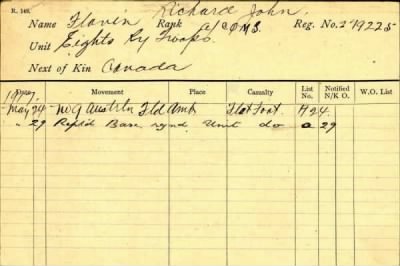 R. 149.
Name Flavin Richard John. Rank a/CQMS. Reg. No. 279225
Unit Eights Ry Troops.
Next of Kin Canada
Date Movement Place Casualty List No. Notified N/K O. W.O. List
1917.
May 24 Austrln Fld Amb Flat Foot H24.
" 29 Rep'td Base Unit do 29